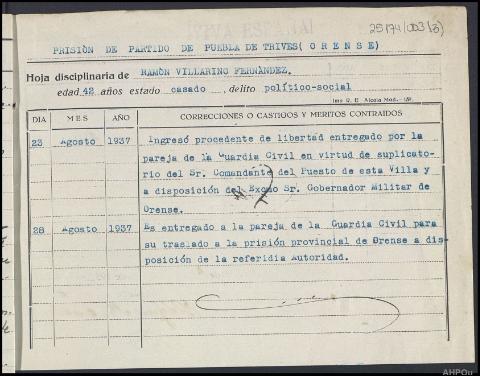 25174(003/3)
PRISIÓN DE PARTIDO DE PUEBLA DE TRIVES( O R E N S E )
Hoja disciplinaria de RAMÓN VILLARINO FERNÁNDEZ.
edad 42 años estado casado , delito político-social
DIA MES AÑO CORRECCIONES O CASTIGOS Y MERITOS CONTRAIDOS
23 Agosto 1937 Ingresó procedente de libertad entregado por la
pareja de la Guardia Civil en virtud de suplicato-
rio del Sr. Comandante del Puesto de esta Villa y
a disposición del Excmo Sr. Gobernador Militar de
Orense.
28 Agosto 1937 Es entregado a la pareja de la Guardia Civil para
su traslado a la prisión provincial de Orense a dis-
posición de la referidia Autoridad.
AHPOu